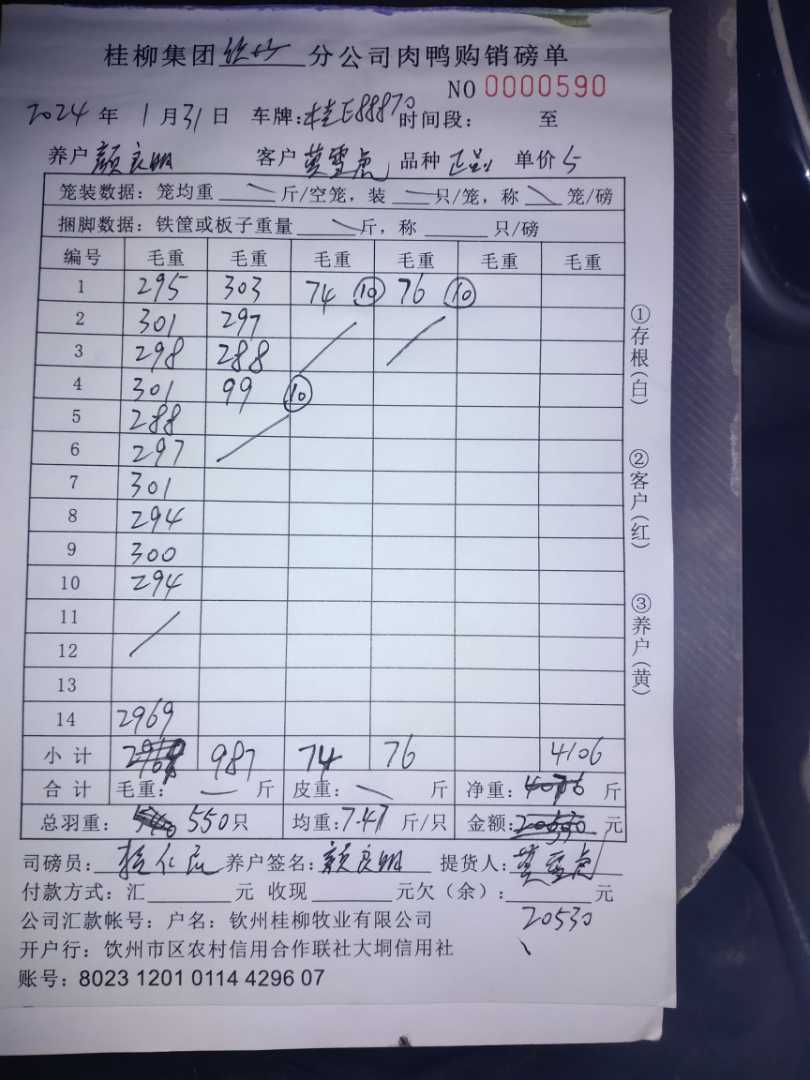 桂柳集团 分公司肉鸭购销磅单
NO 0000590
2024 年 1 月 31 日 车牌:桂E88870 时间段: 至
养户 颜良明 客户 莫雪虎 品种 正品 单价 5
笼装数据: 笼均重 斤/空笼, 装 只/笼, 称 笼/磅
捆脚数据: 铁筐或板子重量 斤, 称 只/磅
编号 毛重 毛重 毛重 毛重 毛重 毛重
1 295 303 74 ⑩ 76 ⑩
2 301 297
3 298 288
4 301 99 ⑩
5 288
6 297
7 301
8 294
9 300
10 294
11
12
13
14 2969
小计 987 74 76 4106
合计 毛重: 斤 皮重: 斤 净重: 4076 斤
总羽重: 550只 均重:7.47 斤/只 金额: 元
司磅员: 养户签名: 颜良明 提货人: 莫雪虎
付款方式: 汇 元 收现 元欠(余): 元
20530
公司汇款帐号: 户名: 钦州桂柳牧业有限公司
开户行: 饮州市区农村信用合作联社大垌信用社
账号: 8023 1201 0114 4296 07
①存根(白)
②客户(红)
③养户(黄)